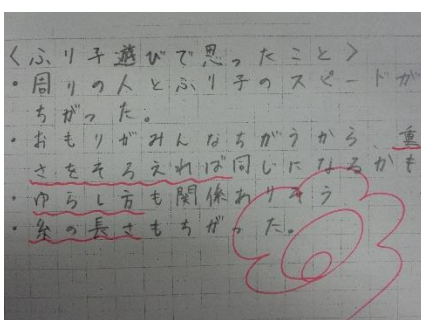 〈ふり子遊びで思ったこと〉
・周りの人とふり子のスピードが
ちがった。
・おもりがみんなちがうから、重
さをそろえれば同じになるかも
・ゆらし方も関係ありそう
・糸の長さもちがった。